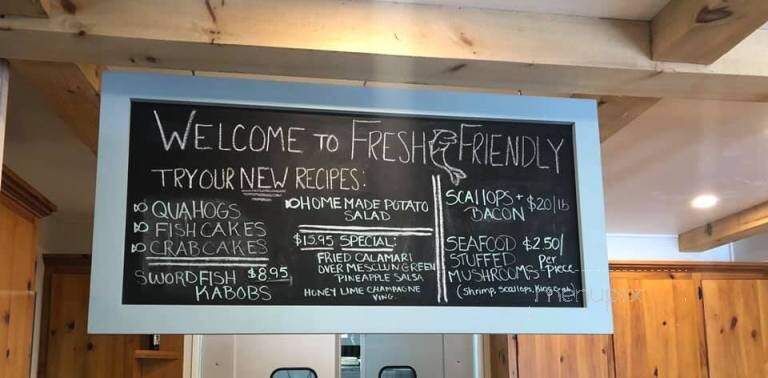 WELCOME TO FRESH & FRIENDLY
TRY OUR NEW RECIPES:
QUAHOGS
FISH CAKES
CRAB CAKES
SWORDFISH $8.95
KABOBS
HOMEMADE POTATO
SALAD
$15.95 SPECIAL:
FRIED CALAMARI
OVER MESCLUN GREEN
PINEAPPLE SALSA
HONEY LIME CHAMPAGNE
VING.
SCALLOPS + $20/lb
BACON
SEAFOOD $2.50/
STUFFED Per
MUSHROOMS Piece
(Shrimp, Scallops, King Crab)
menupix